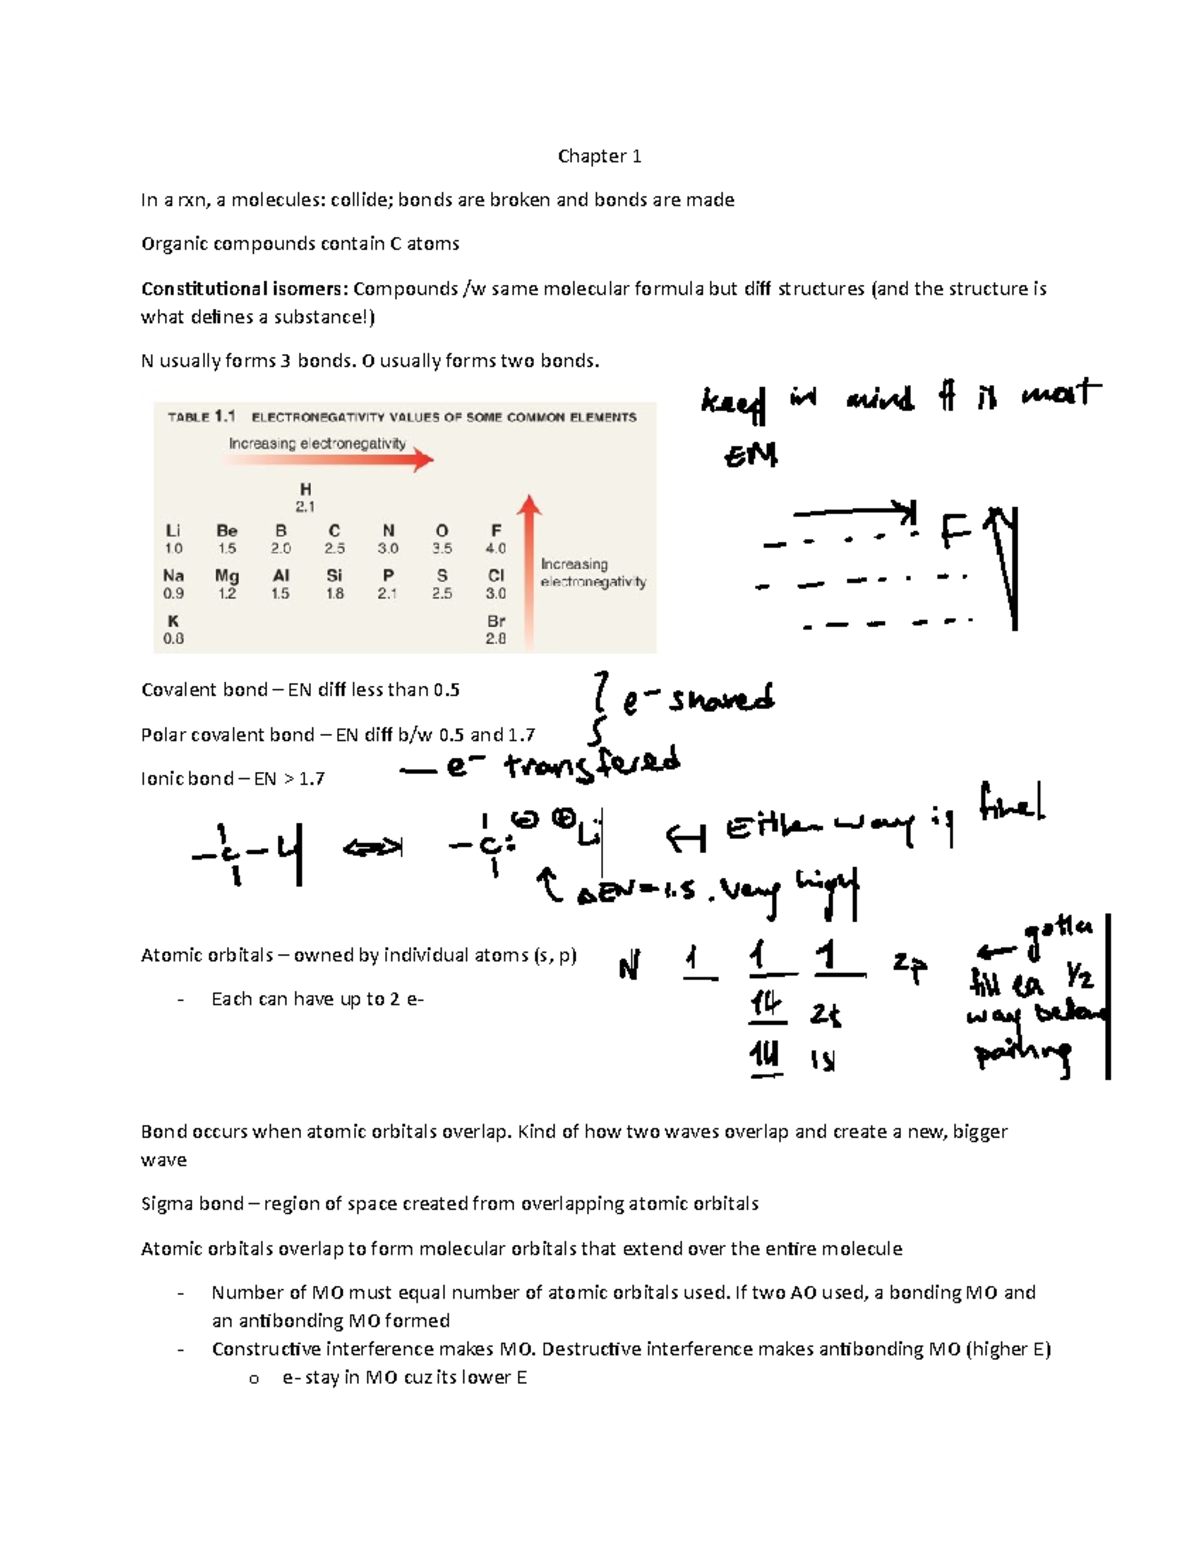 Chapter 1
In a rxn, a molecules: collide; bonds are broken and bonds are made
Organic compounds contain C atoms
Constitutional isomers: Compounds /w same molecular formula but diff structures (and the structure is
what defines a substance!)
N usually forms 3 bonds. O usually forms two bonds.
keep in mind it is most
EN
TABLE 1.1 ELECTRONEGATIVITY VALUES OF SOME COMMON ELEMENTS
Increasing electronegativity
H
2.1
Li Be B C N O F
1.0 1.5 2.0 2.5 3.0 3.5 4.0
Na Mg Al Si P S Cl
0.9 1.2 1.5 1.8 2.1 2.5 3.0
K Br
0.8 2.8
Increasing
electronegativity
F
Covalent bond – EN diff less than 0.5
e- shared
Polar covalent bond – EN diff b/w 0.5 and 1.7
Ionic bond – EN > 1.7
— e- transfered
-C-Li ⇔ -C: ⊖ ⊕ Li
Either way is fine!
ΔEN = 1.5. very high
Atomic orbitals – owned by individual atoms (s, p)
- Each can have up to 2 e-
N 1 1 1 2p
1L 2s
1L 1s
← gotta
fill ea 1/2
way before
pairing
Bond occurs when atomic orbitals overlap. Kind of how two waves overlap and create a new, bigger
wave
Sigma bond – region of space created from overlapping atomic orbitals
Atomic orbitals overlap to form molecular orbitals that extend over the entire molecule
- Number of MO must equal number of atomic orbitals used. If two AO used, a bonding MO and
an antibonding MO formed
- Constructive interference makes MO. Destructive interference makes antibonding MO (higher E)
o e- stay in MO cuz its lower E